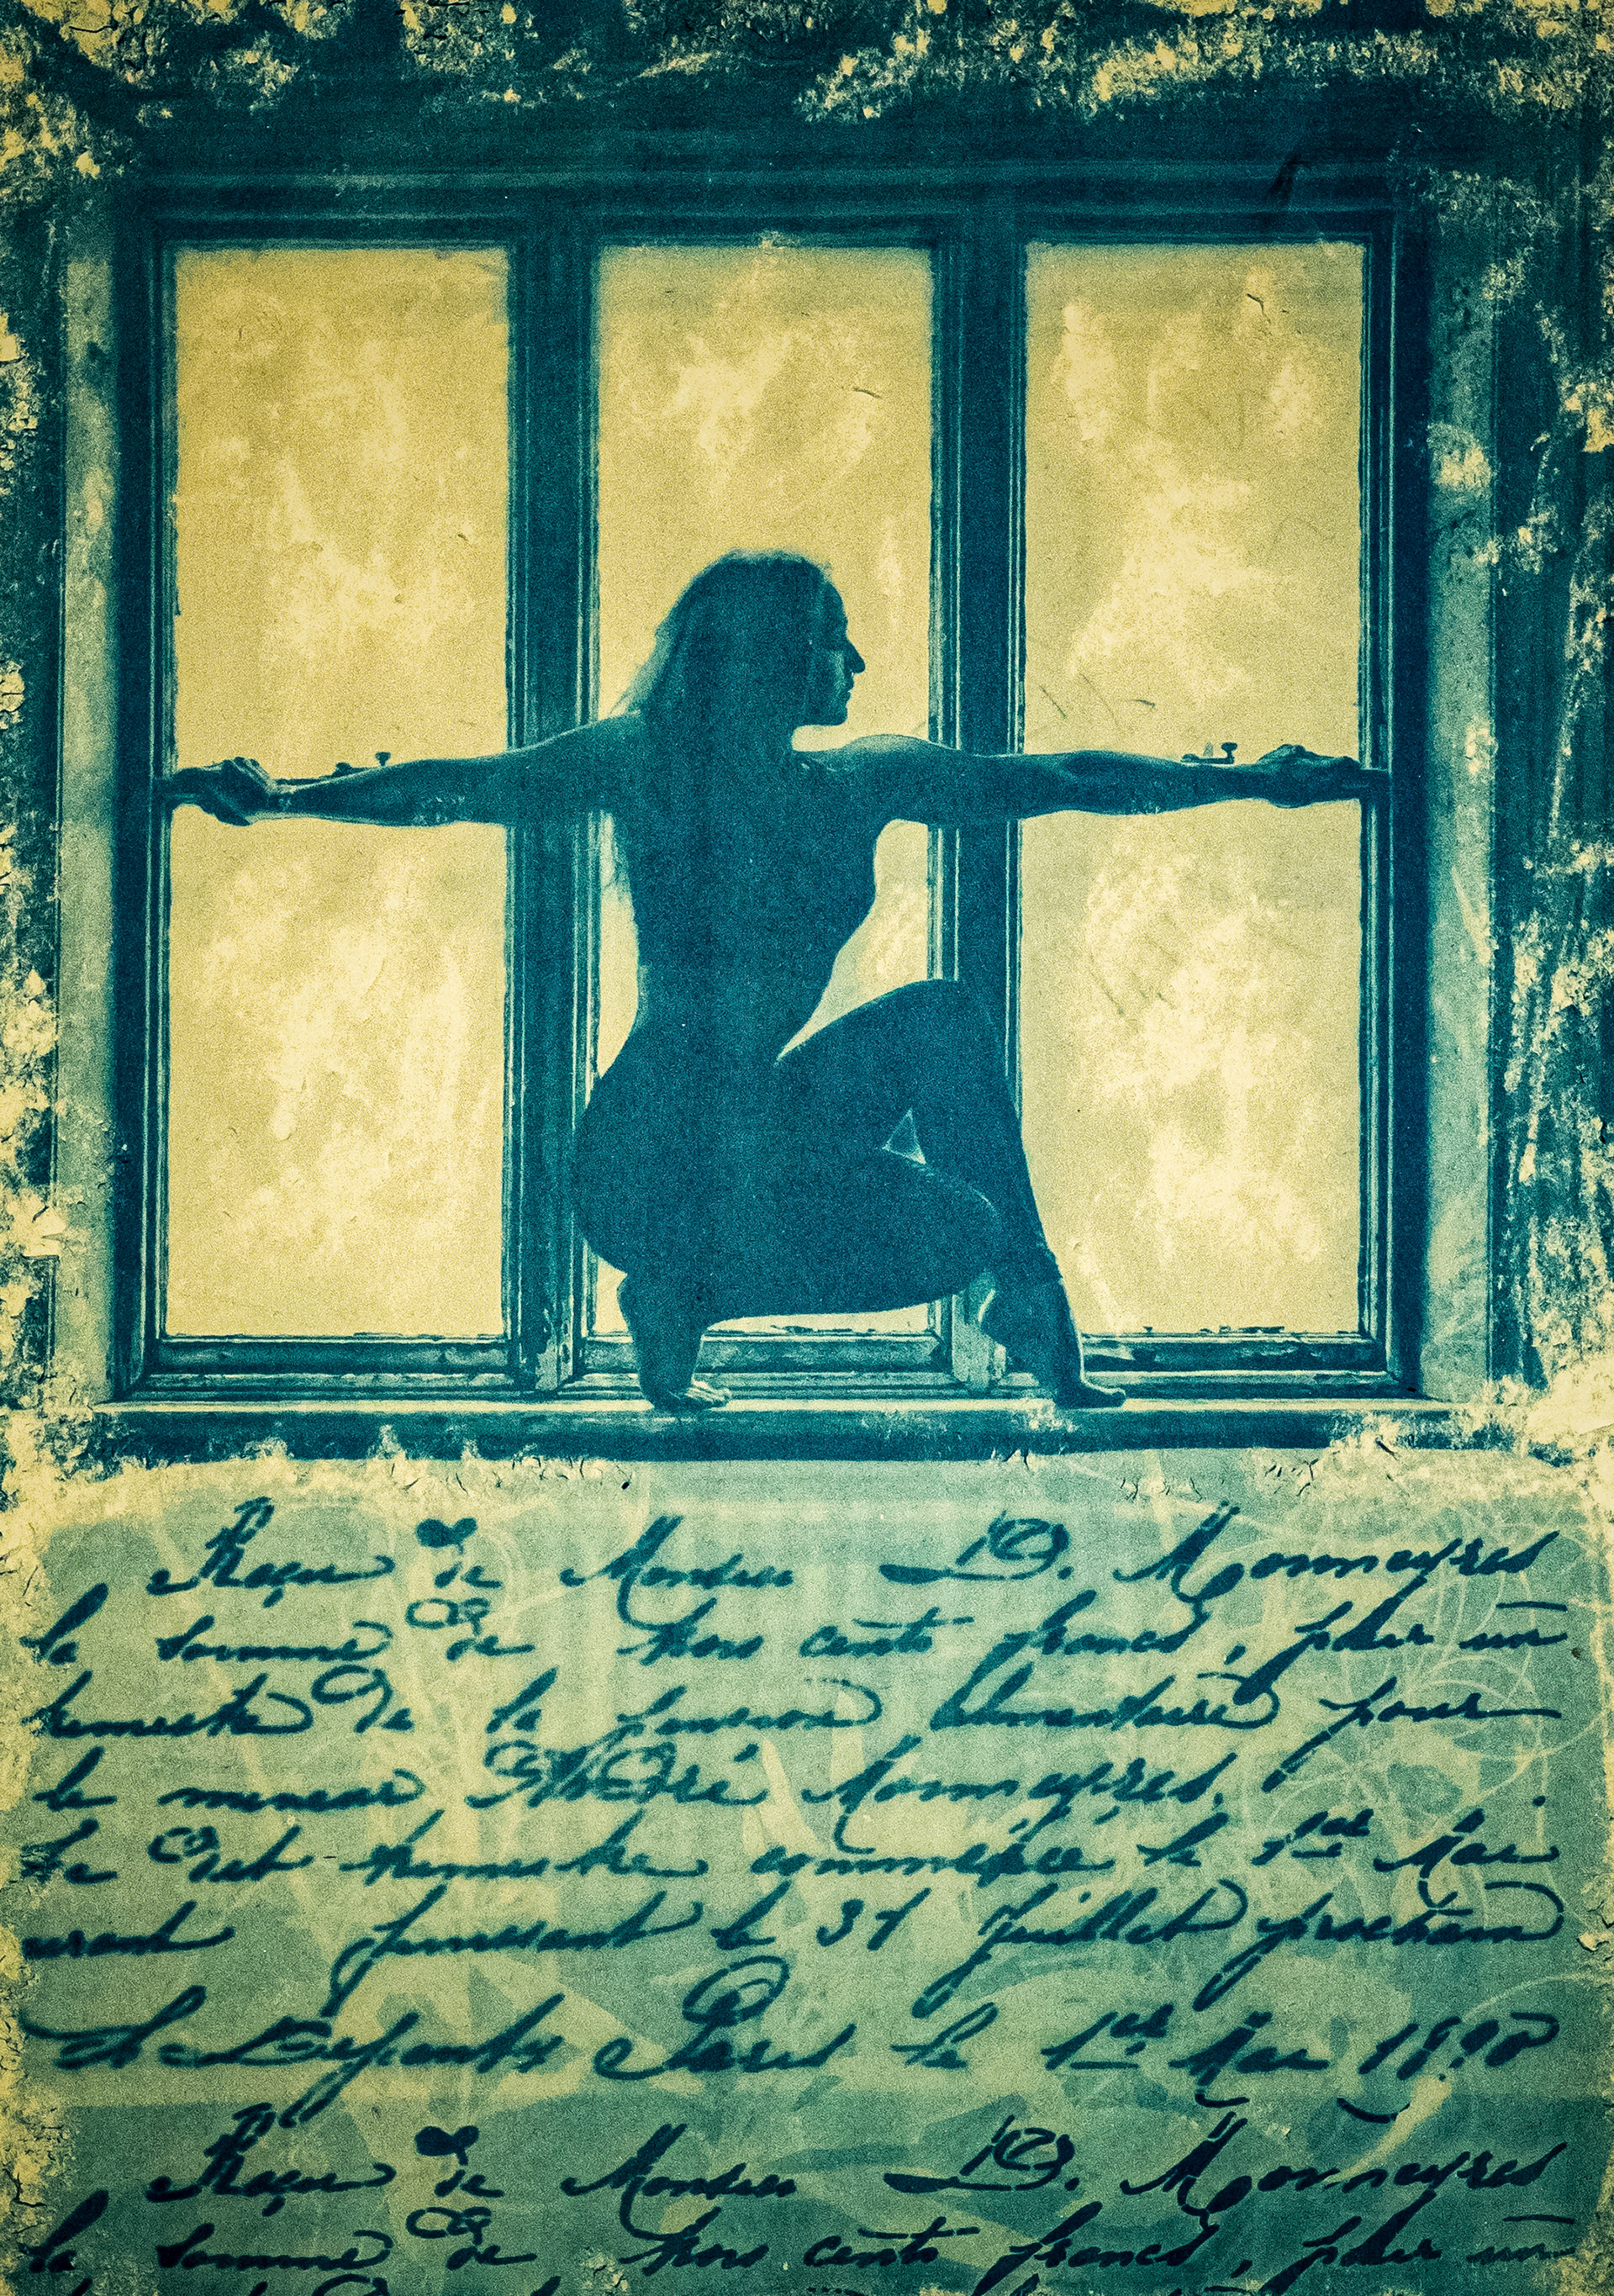 Reçu de Monsieur D. Monneyres
la somme de trois cents francs, pour un
trimestre de la pension alimentaire pour
le mineur André Monneyres.
Le dit trimestre commençée le 1er Mai
finissant le 31 Juillet prochain
Paris le 1er Mai 1898
Reçu de Monsieur D. Monneyres
la somme de trois cents francs, pour un